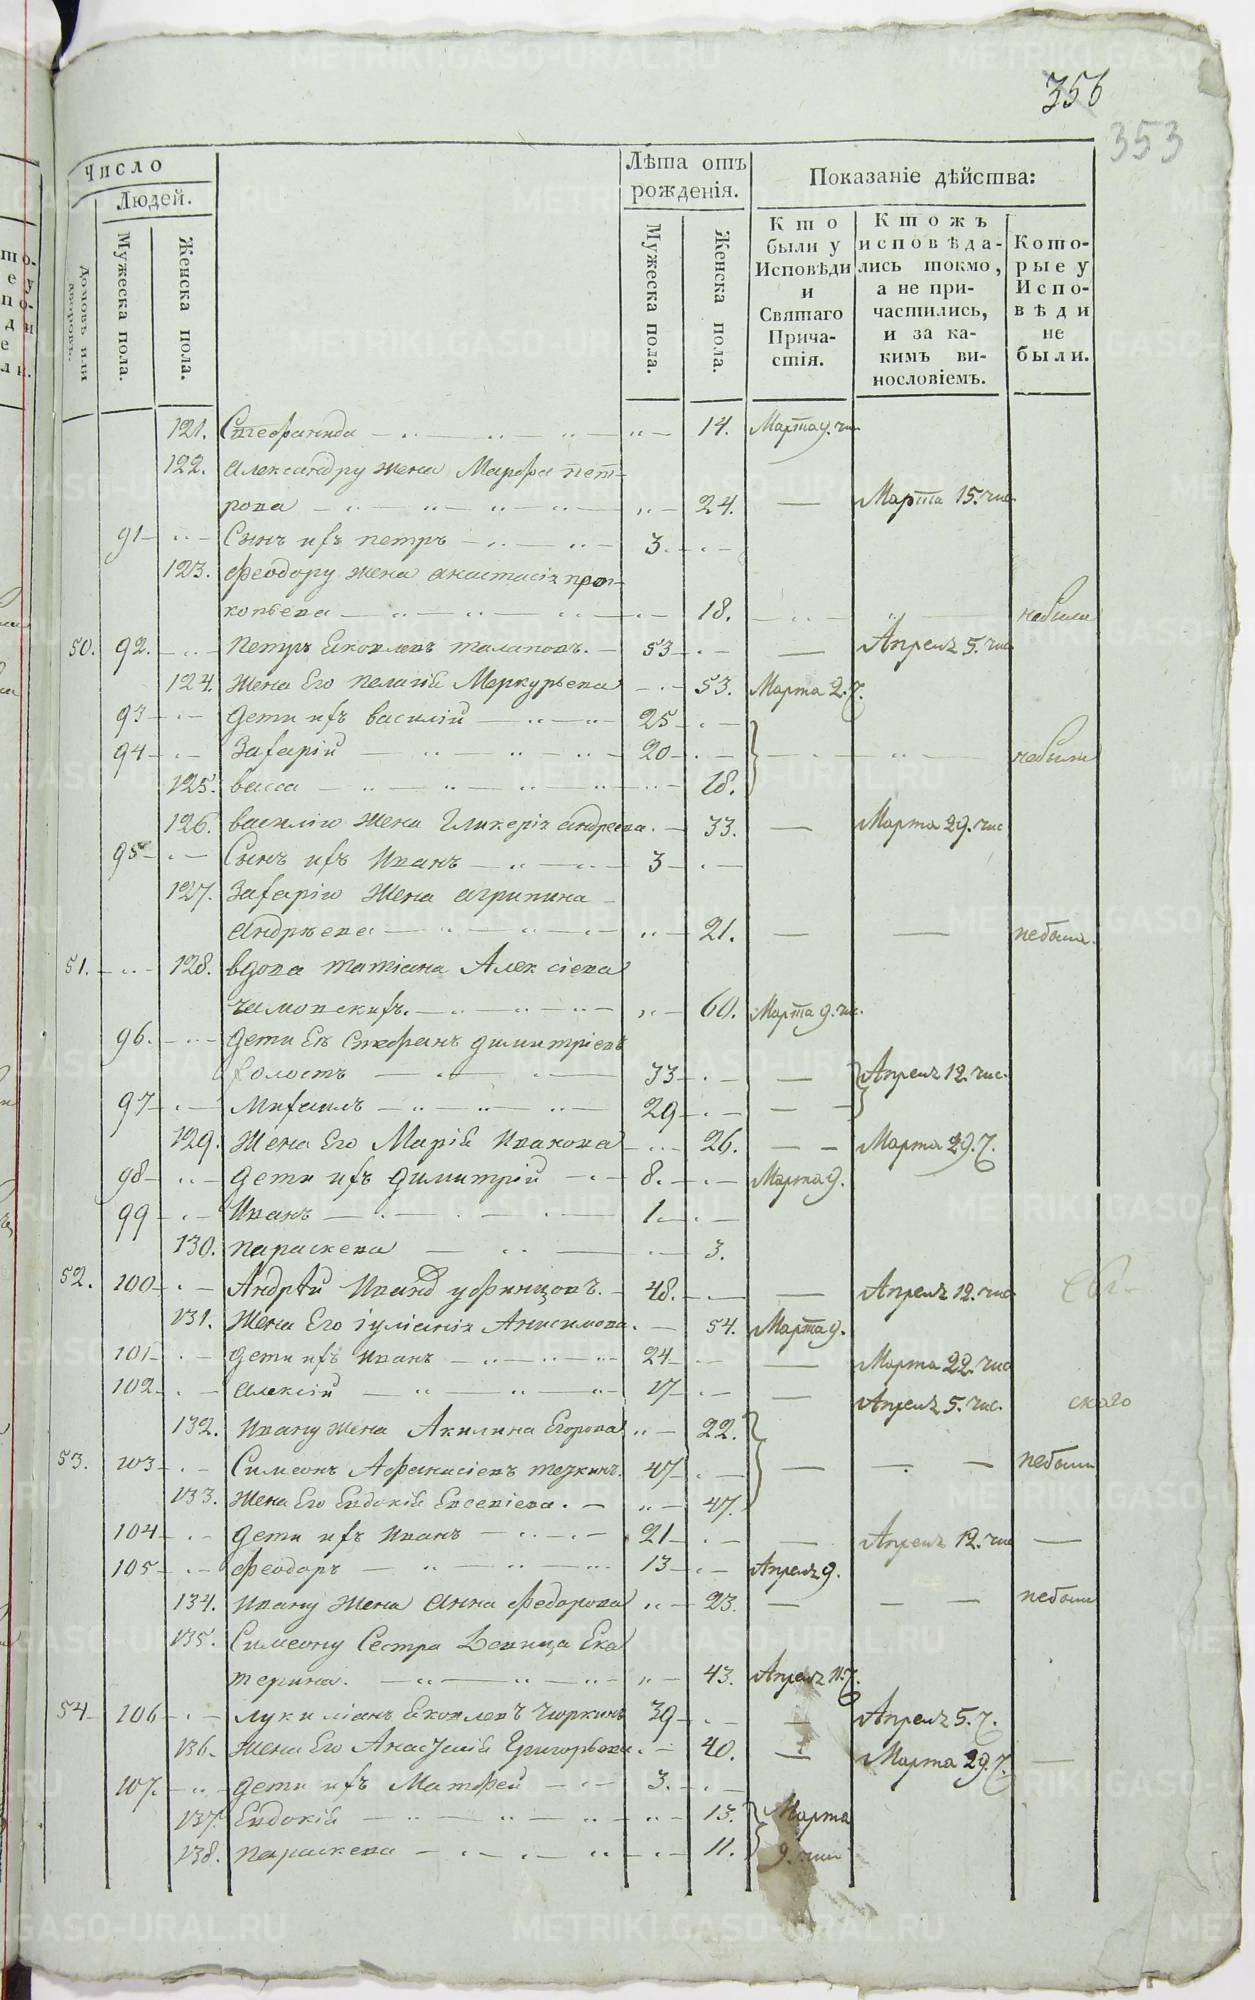 356
353
Число
Людей.
Домовъ или дворовъ.
Мужеска пола.
Женска пола.
Лѣта отъ рожденія.
Мужеска пола.
Женска пола.
Показаніе дѣйства:
Кто были у Исповѣди и Святаго Причастія.
Ктожъ исповѣдались токмо, а не причастились, и за какимъ винословіемъ.
Которые у Исповѣди не были.
121. Стефанида 14. Марта 9. чи
122. Александру жена Марфа пет-
рова 24. Марта 15. чис
91 Сынъ ихъ петръ 3.
123. Феодору жена анастасія прок-
копьева 18. небыли
50. 92. Петръ Яковлевъ талаповъ. 53 Апреля 5. чис
124. Жена Его пелагія Меркурьева 53. Марта 2. ч.
93 Дети ихъ василій 25
94 Захарій 20 небыли
125. васса 18.
126. василію жена Гликерія андреева. 33. Марта 29. чис
95 Сынъ ихъ Иванъ 3
127. Захарію жена агрипина
Андрѣева 21. небыли.
51. 128. вдова татіана Алексіева
60. Марта 9. чис.
96. Дети Ея Стефанъ димитріевъ
холостъ 33 Апреля 12. чис.
97 Михаилъ 29
129. Жена Его Марія Иванова 26. Марта 29. ч.
98 Дети ихъ димитрій 8. Марта 9.
99 Иванъ 1.
130. параскева 3.
52. 100 Андрѣй Иванов уфинцовъ. 48. Апреля 12. чис
131. Жена Его іуліанія Анисимова. 54. Марта 9.
101 Дети ихъ Иванъ 24 Марта 22. чис
102 Алексій 17 Апреля 5. чис. скаго
132. Ивану жена Акилина Егорова 22.
53. 103 Симеонъ Афанасіевъ тезкинъ. 47 небыли
133. Жена Его Евдокія Евсевіева. 47.
104 Дети ихъ Иванъ 21 Апреля 12. чис
105 Феодоръ 13 Апреля 9.
134. Ивану жена Анна Федорова 23. небыли
135. Симеону Сестра Девица Ека
терина. 43. Апреля 11. ч.
54 106 Лукиліанъ Яковлевъ Чюркинъ 39 Апреля 5. ч.
136. Жена Его Анастасія Григорьева. 40. Марта 29. ч.
107. Дети ихъ Матфей 3.
137. Евдокія 13. Марта
138. параскева 11. 9. чис
METRIKI.GASO-URAL.RU